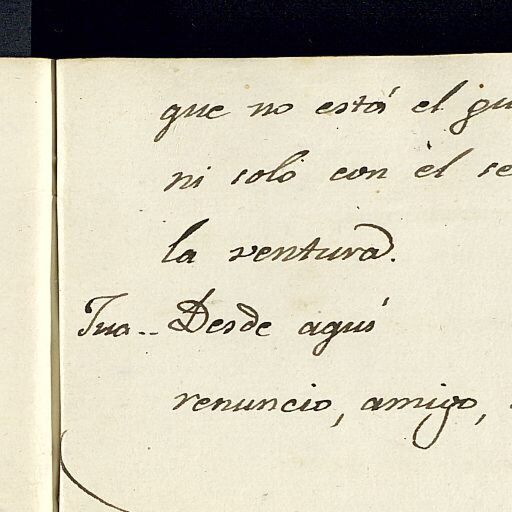 que no está el gu
ni solo con èl se
la ventura.
Jua.. Desde aquí
renuncio, amigo,